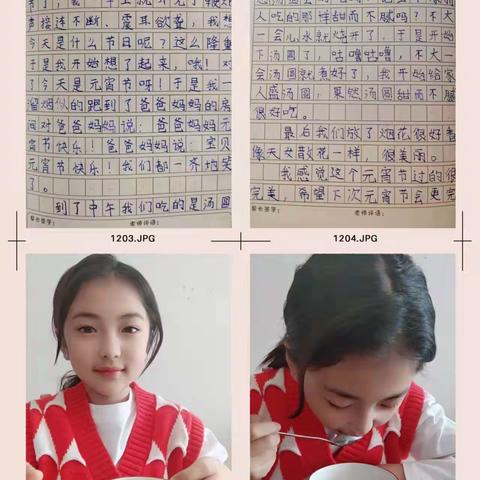 声接连不断、震耳欲聋，我想
今天是什么节日呢？这么隆重
于是我开始想了起来，哦！对
了今天是元宵节呀！于是我一
溜烟似的跑到了爸爸妈妈的房
间对爸爸妈妈说：爸爸妈妈元
宵节快乐！爸爸妈妈说：宝贝
元宵节快乐！我们都一齐地笑
了。
到了中午我们吃的是汤圆
家长签字： 老师评语：
1203.JPG
人吃的那样甜而不腻吗？不大
一会儿水就烧开了，于是开始
下汤圆了，咕噜咕噜，不大一
会汤圆就煮好了，我开始给家
人盛汤圆，果然汤圆甜而不腻
很好吃。
最后我们放了烟花很好看
像天女散花一样，很美丽。
我感觉这个元宵节过的很
完美，希望下次元宵节会更完
家长签字： 老师评语：
1204.JPG